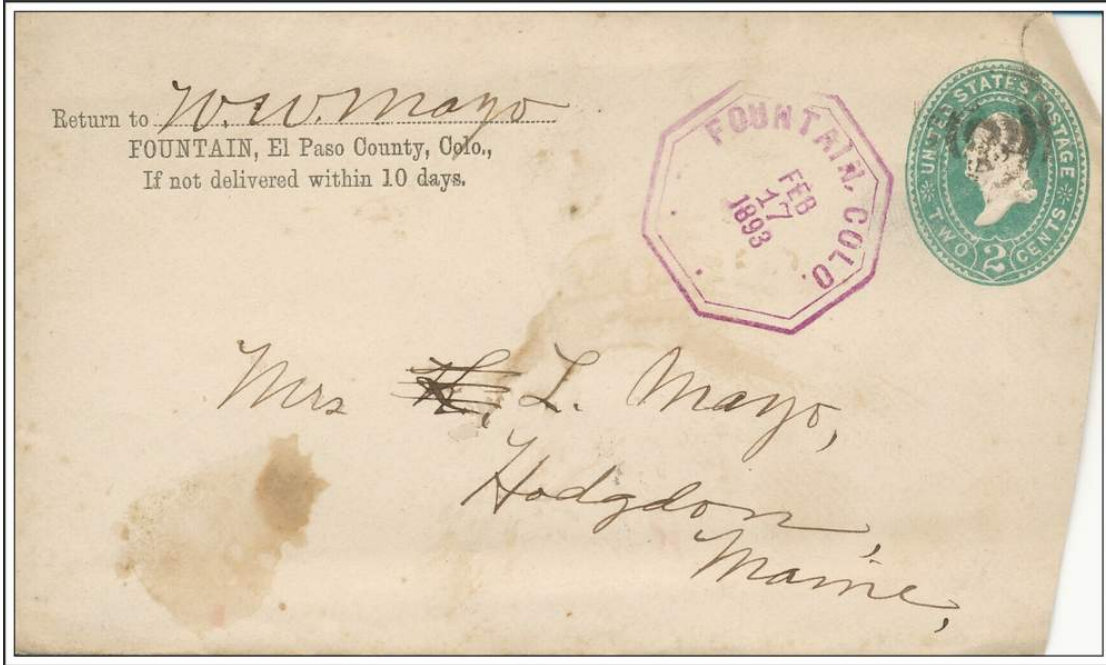 Return to W. W. Mayo
FOUNTAIN, El Paso County, Colo.,
If not delivered within 10 days.
FOUNTAIN, COLO.
FEB
17
1893
UNITED STATES POSTAGE
TWO 2 CENTS
Mrs L. Mayo,
Hodgdon,
Maine,